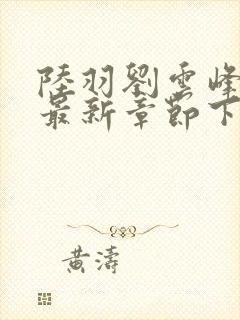 陸羽劉雲峰
最新章節下
黃濤